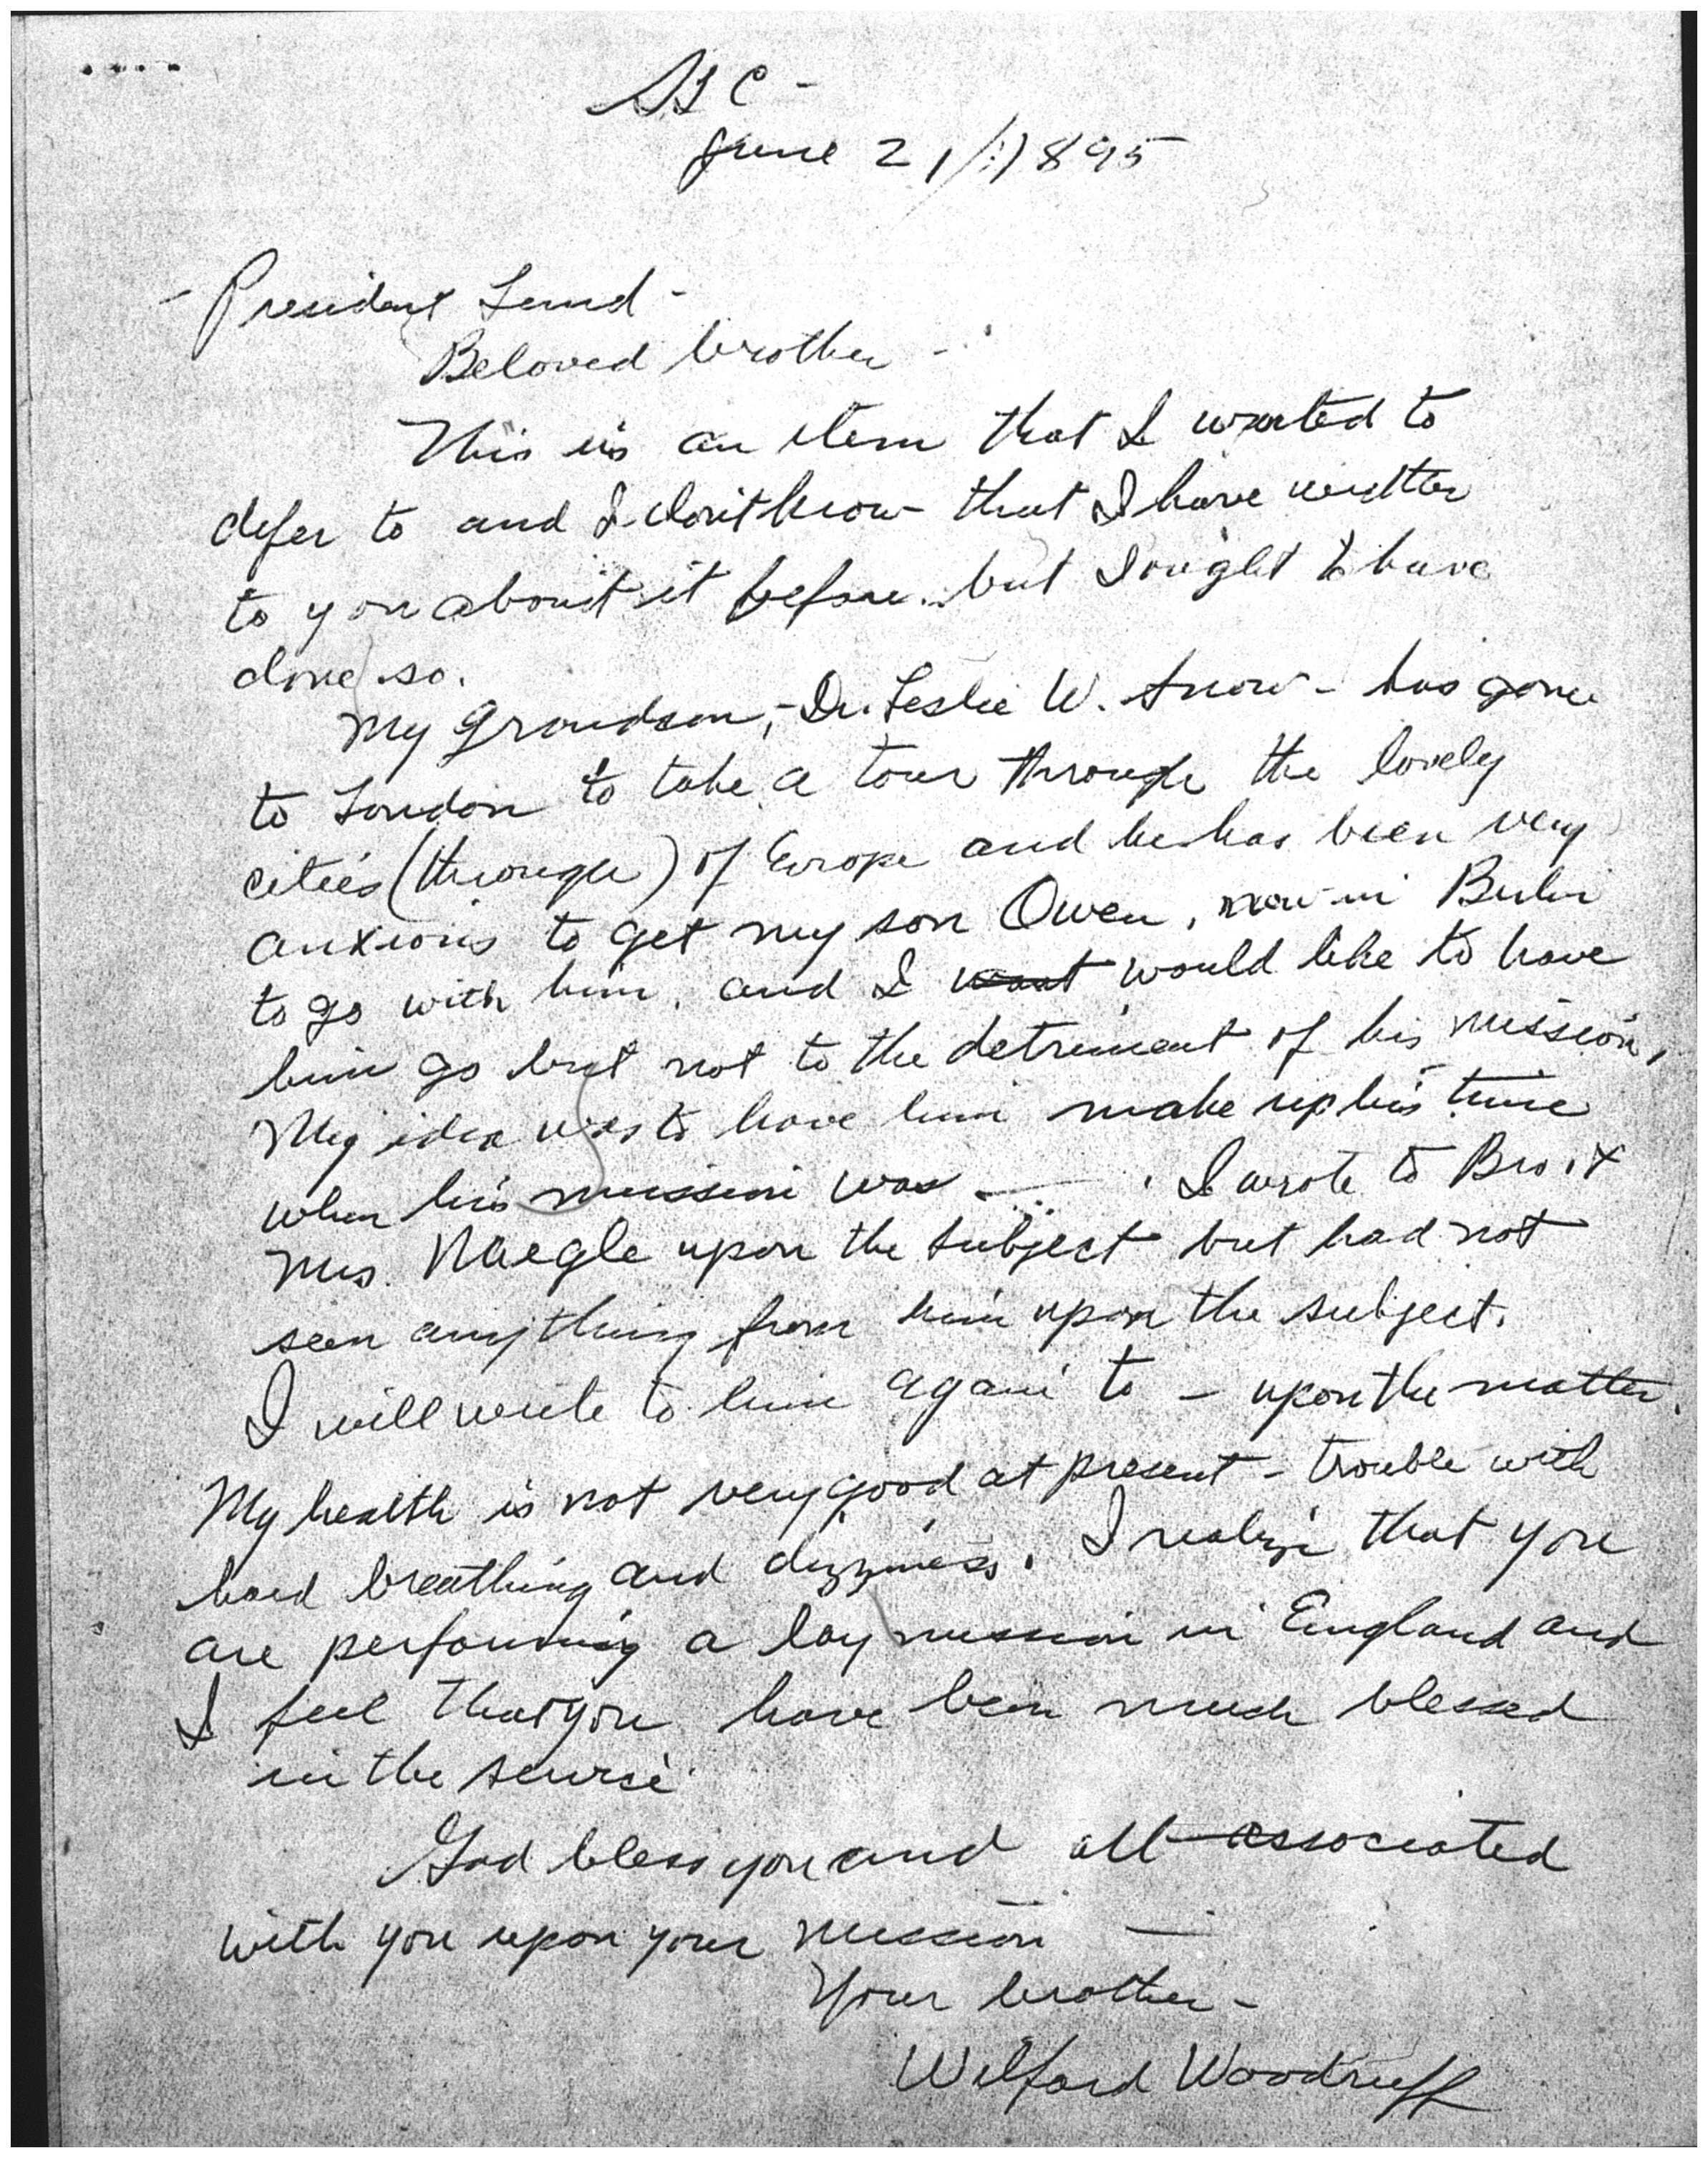 SLC -
June 21/:/1895
- President Lund -
Beloved brother -
This is an item that I wanted to
defer to and I don't know that I have written
to you about it before. but I ought to have
done so.
My grandson, - Dr. Leslie W. Snow - has gone
to London to take a tour through the lovely
cities (through) of Europe and he has been very
anxious to get my son Owen, now in Berlin
to go with him. and I want would like to have
him go but not to the detriment of his mission,
My idea was to have him make up his time
when his mission was - . I wrote to Bro. &
Mrs. Naegle upon the subject but had not
seen anything from him upon the subject.
I will write to him again to - upon the matter.
My health is not very good at present - trouble with
hard breathing and dizziness. I realize that you
are performing a lay mission in England and
I feel that you have been much blessed
in the service
God bless you and all associated
with you upon your mission -
Your brother -
Wilford Woodruff